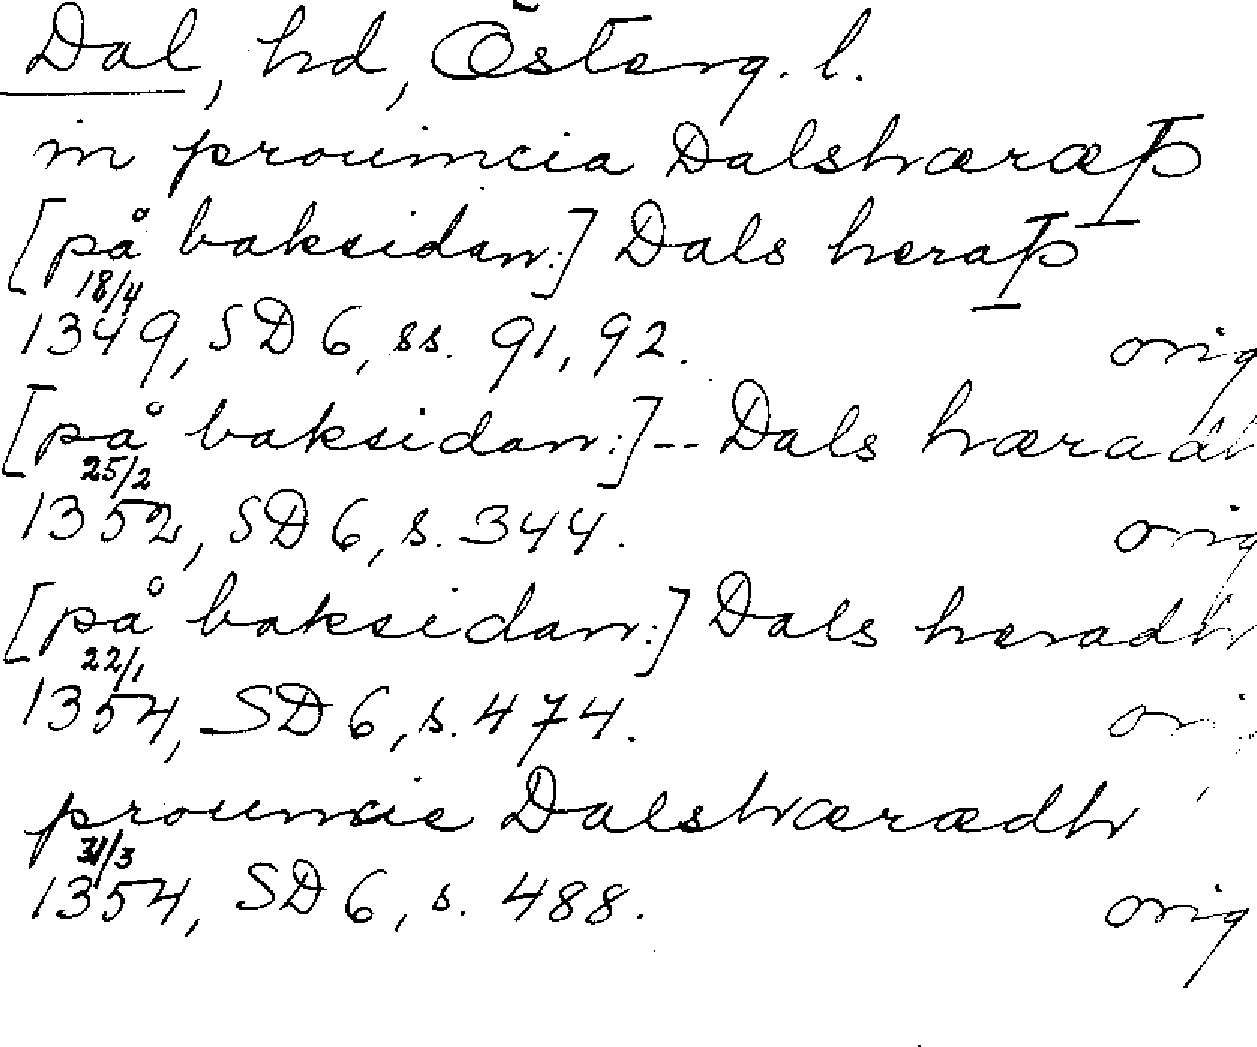 Dal, hd, Österg. l.
in prouincia Dalshæræþ
[på baksidan:] Dals heraþ
18/4
1349, SD 6, ss. 91, 92. orig
[på baksidan:] -- Dals hæradh
25/2
1352, SD 6, s. 344. orig
[på baksidan:] Dals hæradh
22/1
1354, SD 6, s. 474. ori
prouincie Dalshærædh
31/3
1354, SD 6, s. 488. orig